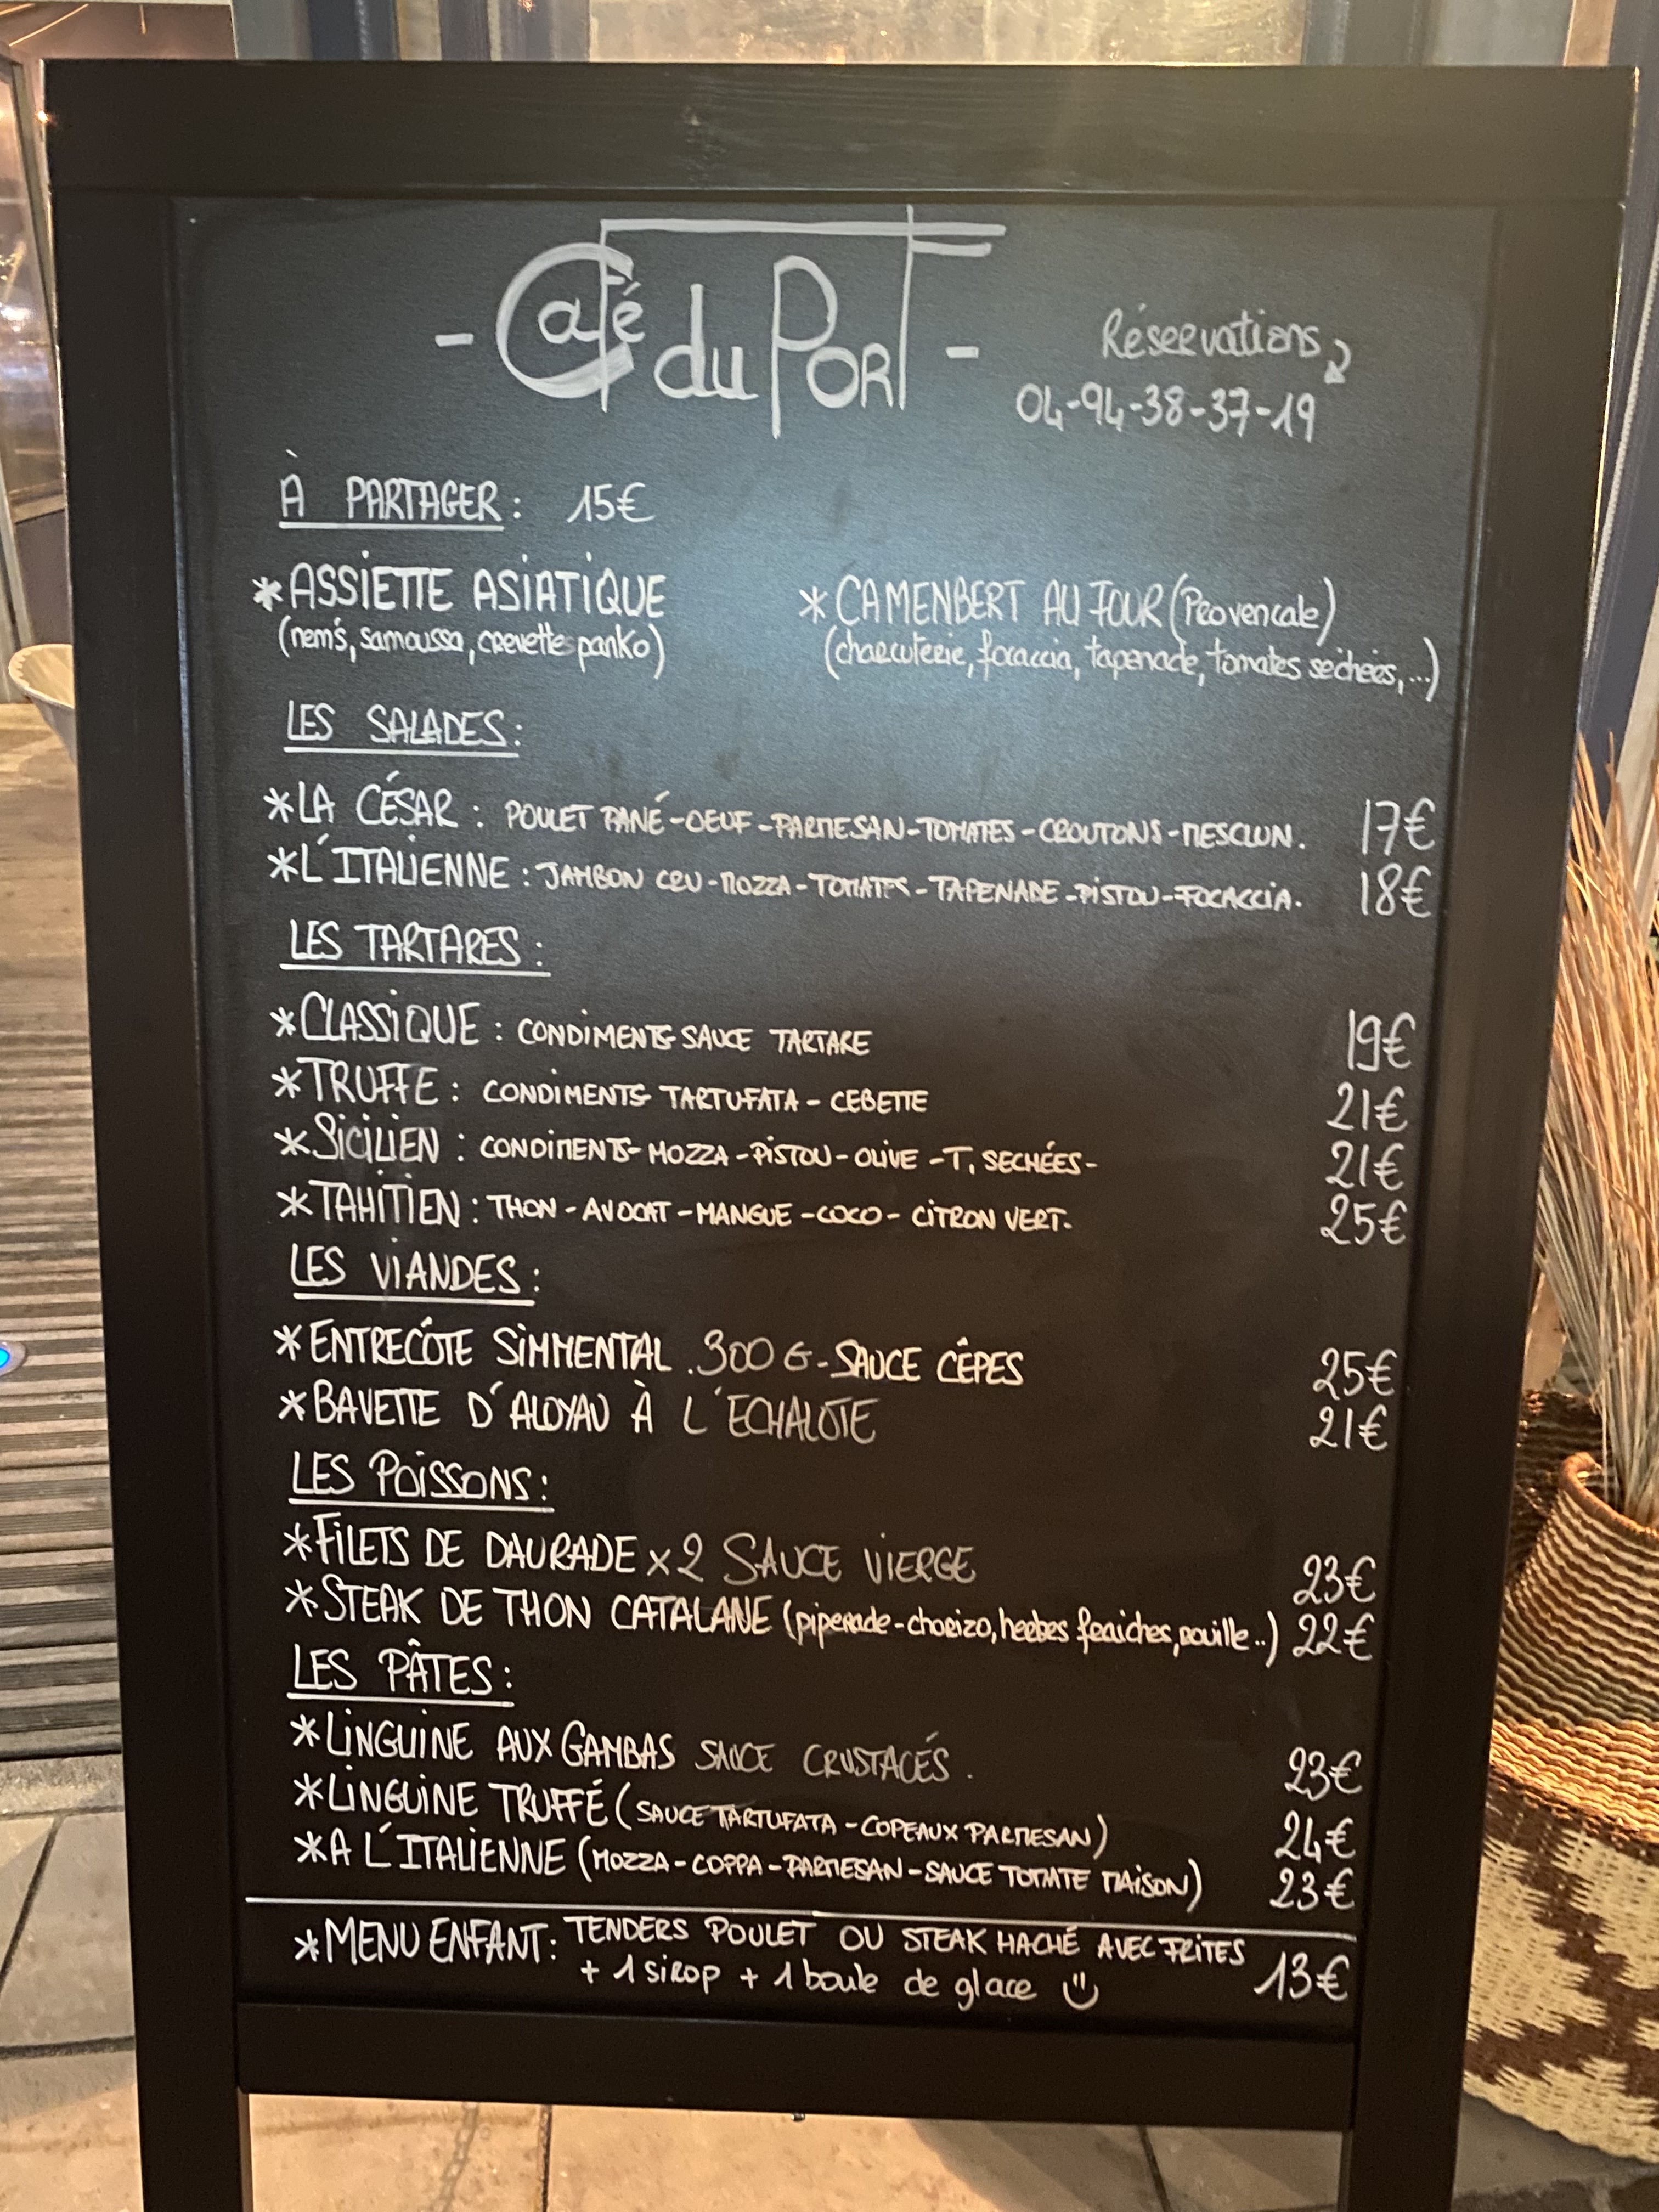 - Café du Port -
Réservations
04-94-38-37-19
À PARTAGER : 15€
*ASSIETTE ASIATIQUE
(nem's, samoussa, crevette panko)
*CAMENBERT AU FOUR (Provencale)
(charcuterie, focaccia, tapenade, tomates séchées,...)
LES SALADES :
*LA CÉSAR : POULET PANÉ-OEUF-PARMESAN-TOMATES-CROUTONS-MESCLUN. 17€
*L'ITALIENNE : JAMBON CRU-MOZZA-TOMATES-TAPENADE-PISTOU-FOCACCIA. 18€
LES TARTARES :
*CLASSIQUE : CONDIMENTS SAUCE TARTARE 19€
*TRUFFE : CONDIMENTS TARTUFATA - CEBETTE 21€
*SICILIEN : CONDIMENTS-MOZZA-PISTOU-OLIVE-T, SECHÉES- 21€
*TAHITIEN : THON-AVOCAT-MANGUE-COCO-CITRON VERT. 25€
LES VIANDES :
*ENTRECÔTE SIMMENTAL .300G-SAUCE CÊPES 25€
*BAVETTE D'ALOYAU À L'ECHALOTE 21€
LES POISSONS :
*FILETS DE DAURADE x2 SAUCE VIERGE 23€
*STEAK DE THON CATALANE (piperade-chorizo, herbes fraiches, rouille..) 22€
LES PÂTES :
*LINGUINE AUX GAMBAS SAUCE CRUSTACÉS. 23€
*LINGUINE TRUFFÉ (SAUCE TARTUFATA-COPEAUX PARMESAN) 24€
*A L'ITALIENNE (MOZZA-COPPA-PARMESAN-SAUCE TOMATE MAISON) 23€
*MENU ENFANT : TENDERS POULET OU STEAK HACHÉ AVEC FRITES 13€
+ 1 SIROP + 1 boule de glace